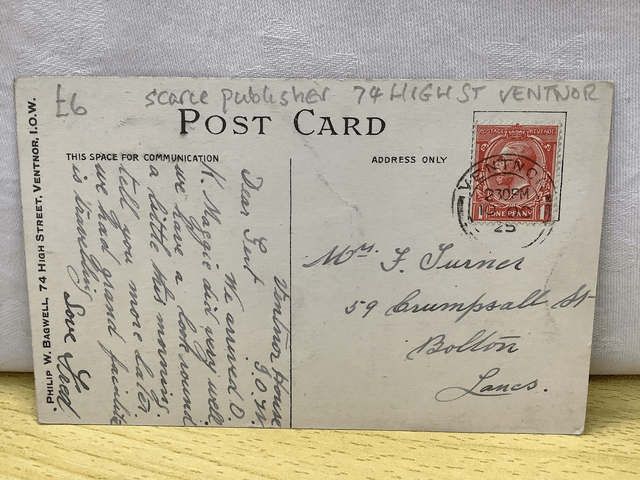 £6 scarce publisher 74 HIGH ST VENTNOR
POST CARD
THIS SPACE FOR COMMUNICATION
ADDRESS ONLY
POSTAGE REVENUE
ONE PENNY
VENTNOR
2 30 PM
25
Mrs F. Turner
59 Crumpsall St
Bolton
Lancs.
Ventnor House
I.O.W
Dear Gert
We arrived O.
K. Maggie did very well
we have a look round
a little this morning.
tell you more later
we had grand facilite
is travelling
Love Fred.
PHILIP W. BAGWELL, 74 HIGH STREET, VENTNOR, I.O.W.